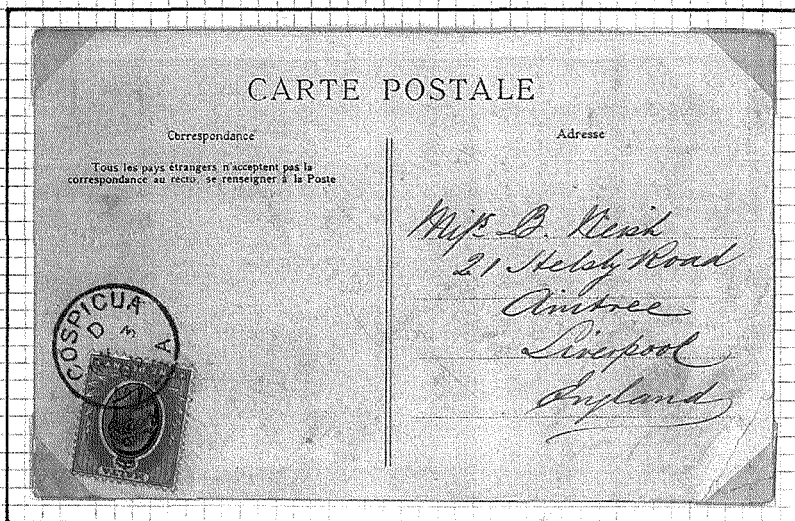 CARTE POSTALE
Correspondance
Tous les pays étrangers n'acceptent pas la
correspondance au recto, se renseigner à la Poste
Adresse
Miss B.
21 Helsby Road
Aintree
Liverpool
England
COSPICUA
D
3
A